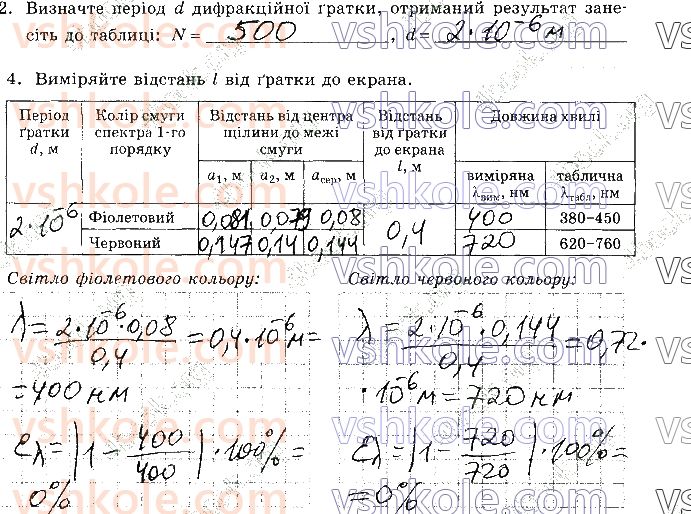 2. Визначте період d дифракційної ґратки, отриманий результат зане-
сіть до таблиці: N = 500, d = 2·10⁻⁶ м
4. Виміряйте відстань l від ґратки до екрана.
Період ґратки d, м | Колір смуги спектра 1-го порядку | Відстань від центра щілини до межі смуги | Відстань від ґратки до екрана l, м | Довжина хвилі
a₁, м | a₂, м | aсер, м | виміряна λвим, нм | таблична λтабл, нм
2·10⁻⁶ | Фіолетовий | 0,081 | 0,079 | 0,08 | 0,4 | 400 | 380–450
Червоний | 0,147 | 0,14 | 0,144 | 720 | 620–760
Світло фіолетового кольору: Світло червоного кольору:
λ = 2·10⁻⁶·0,08 / 0,4 = 0,4·10⁻⁶ м =
= 400 нм
ελ = |1 − 400/400| · 100% =
= 0%
λ = 2·10⁻⁶·0,144 / 0,4 = 0,72·
·10⁻⁶ м = 720 нм
ελ = |1 − 720/720| · 100% =
= 0%
vshkole.com